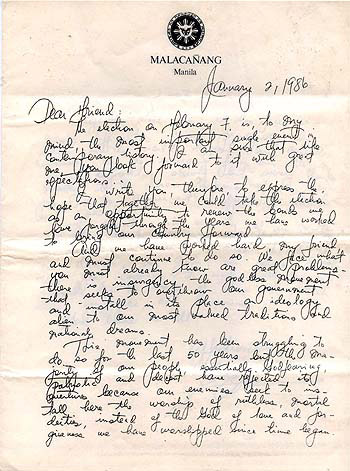 MALACAÑANG
Manila
January 2, 1986
Dear Friend:
The election on February 7, is, to my
mind, the most important single event in
contemporary history. I am sure that like
me, you look forward to it with great
expectations.
I write you therefore to express the
hope that together we could take the election
as an opportunity to renew the bonds we
have forged through the years we have worked
to bring our country forward
And we have worked hard, my friend,
and must continue to do so. We face what
you must already know are great problems-
there is insurgency - the godless movement
that seeks to overthrow our government
and install in its place an ideology
alien to our most valued traditions and
national dreams.
This movement has been struggling to
do so for the last 50 years but the ma-
jority of our people, essentially God fearing,
patriotic and decent have rejected its
overtures because our enemies seek to ins-
tall here the worship of ruthless, mortal
deities, instead of the God of love and for-
giveness we have worshipped since time began